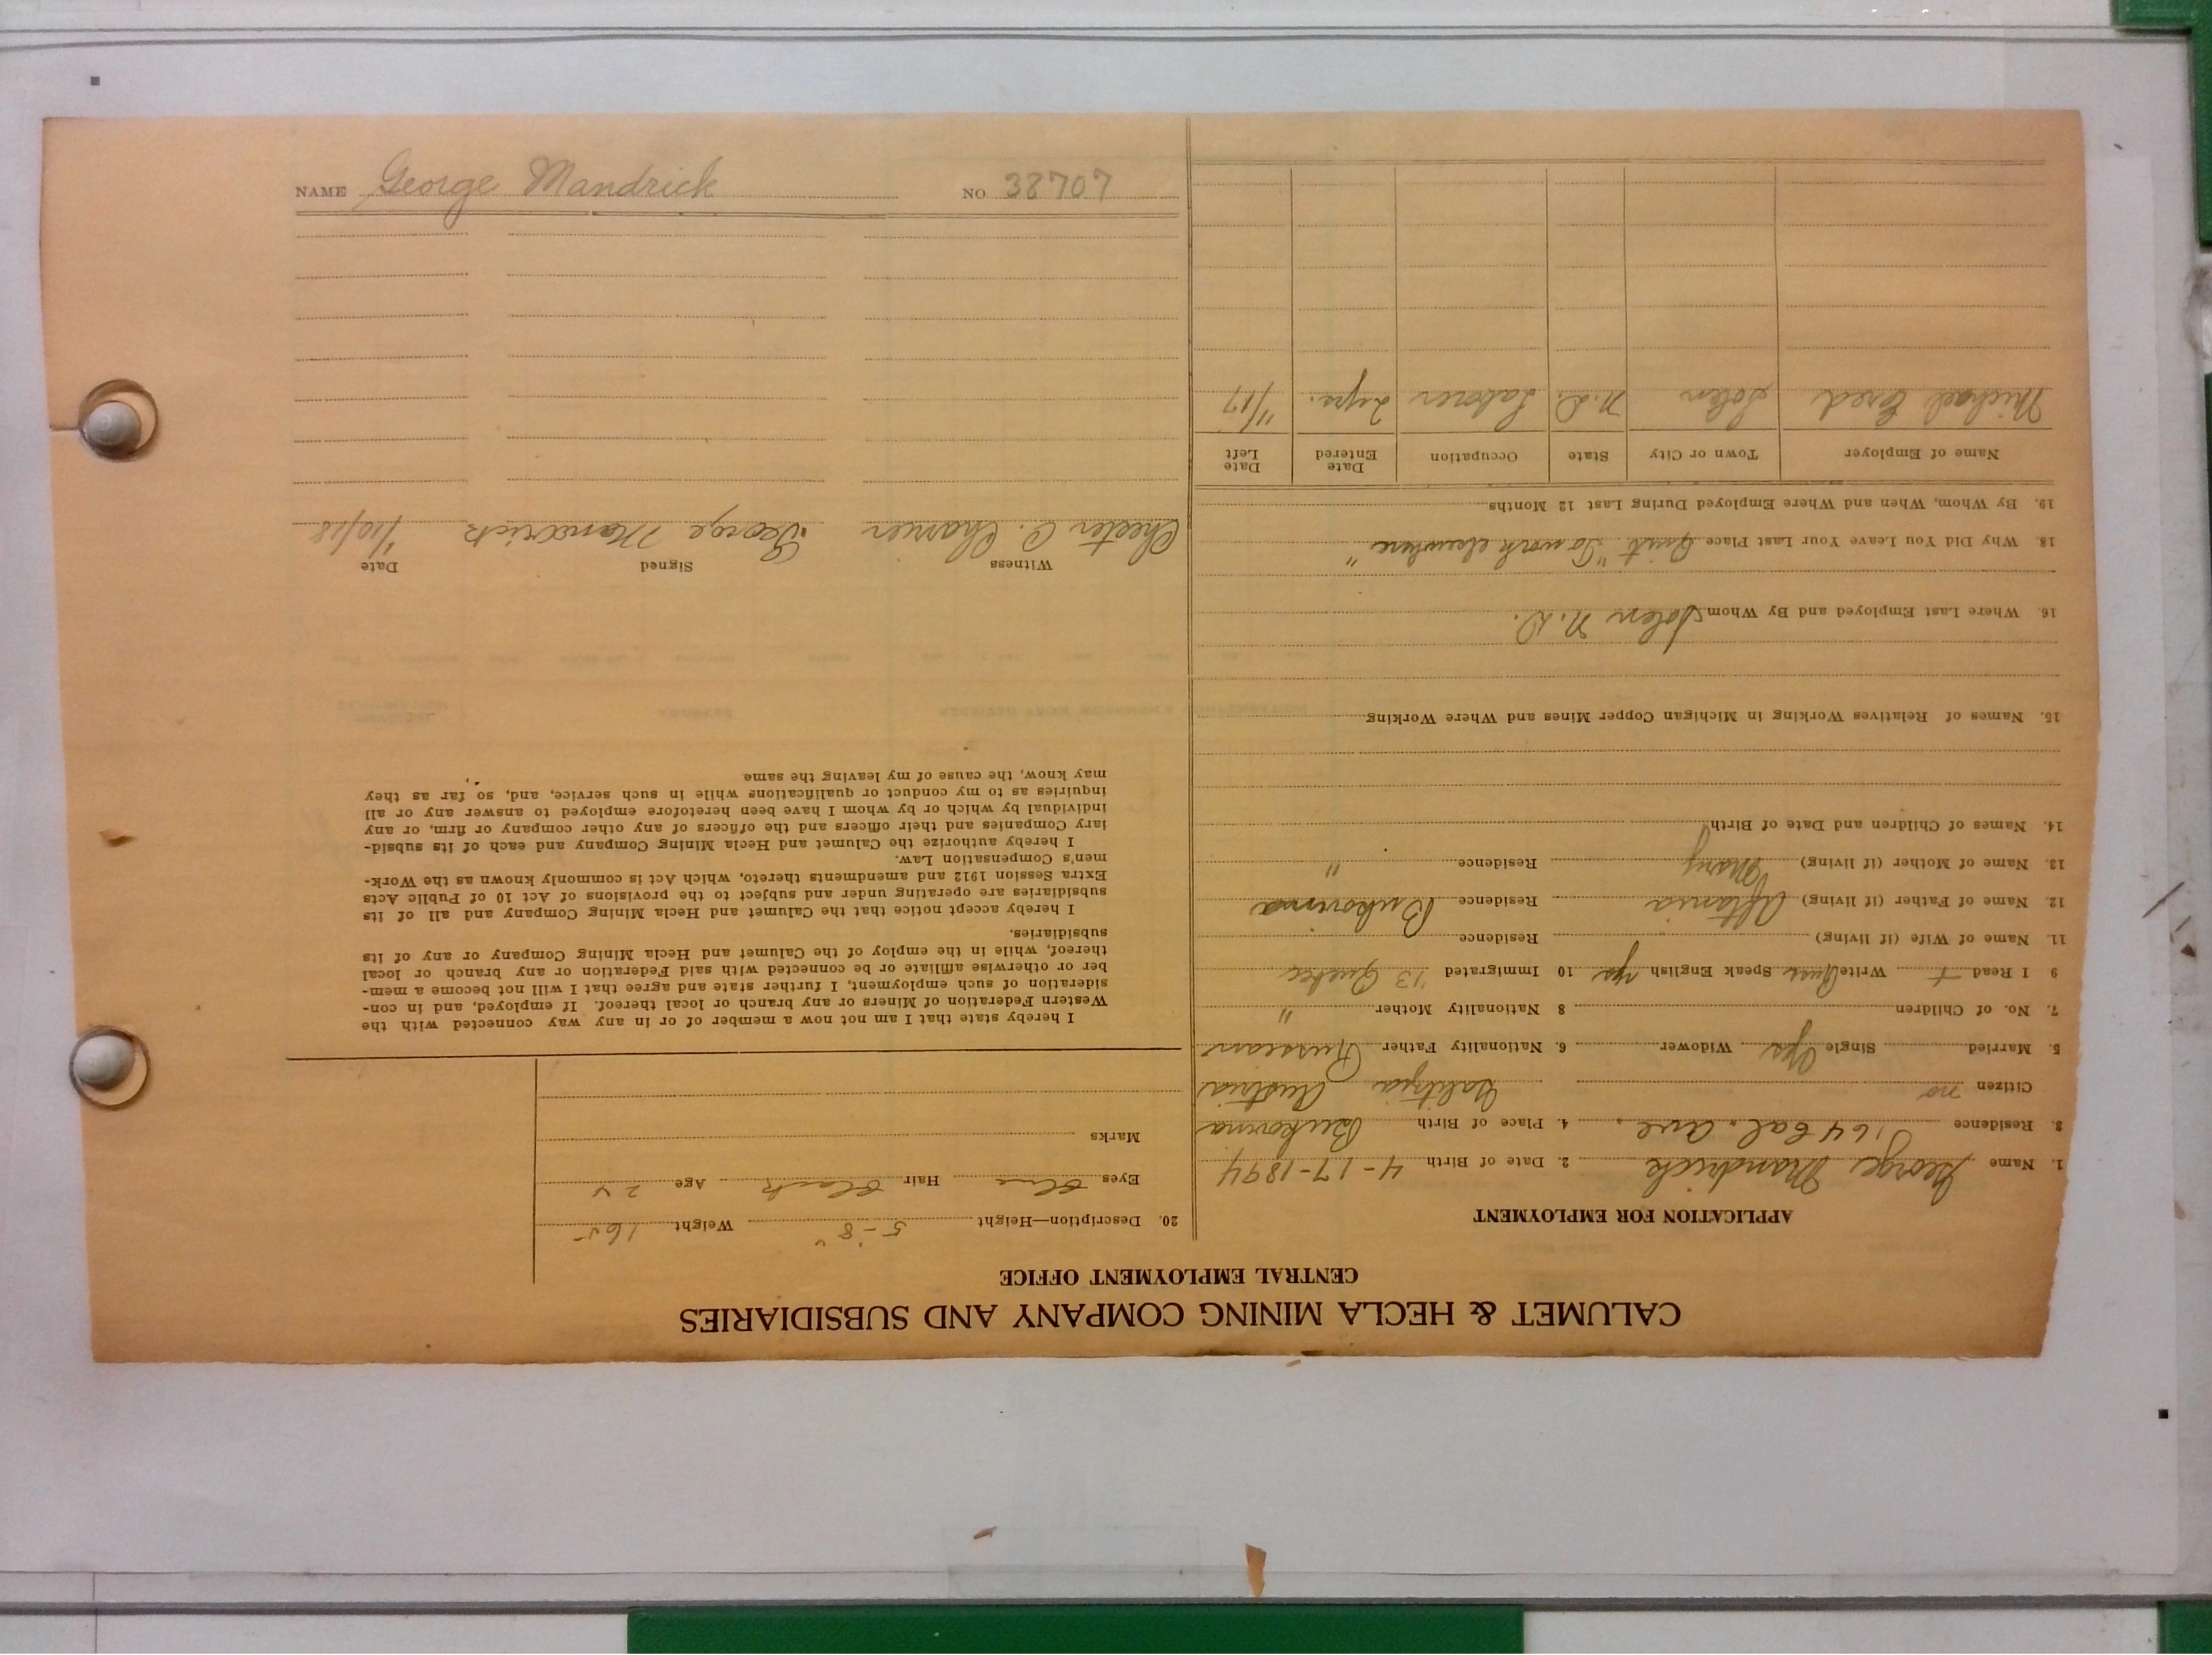 CALUMET & HECLA MINING COMPANY AND SUBSIDIARIES
CENTRAL EMPLOYMENT OFFICE
APPLICATION FOR EMPLOYMENT
1. Name George Mandrick 2. Date of Birth 4-17-1894
3. Residence 164 Cal. Ave. 4. Place of Birth Bukovina
Citizen no Galitzia Austria
5. Married Single Yes Widower 6. Nationality Father Russian
7. No. of Children 8 Nationality Mother "
9 I Read + Write Russ Speak English yes 10 Immigrated '13 Quebec
11. Name of Wife (if living) Residence
12. Name of Father (if living) Residence Bukovina
13. Name of Mother (if living) Mary Residence "
14. Names of Children and Date of Birth
15. Names of Relatives Working in Michigan Copper Mines and Where Working
16. Where Last Employed and By Whom Solen N.D.
18. Why Did You Leave Your Last Place Quit "To work elsewhere"
19. By Whom, When and Where Employed During Last 12 Months
Name of Employer Town or City State Occupation Date Entered Date Left
Michael Solen N.D. Laborer 2 yrs. 11/17
20. Description—Height 5-8" Weight 165
Eyes Blue Hair Black Age 24
Marks
I hereby state that I am not now a member of or in any way connected with the
Western Federation of Miners or any branch or local thereof. If employed, and in con-
sideration of such employment, I further state and agree that I will not become a mem-
ber or otherwise affiliate or be connected with said Federation or any branch or local
thereof, while in the employ of the Calumet and Hecla Mining Company or any of its
subsidiaries.
I hereby accept notice that the Calumet and Hecla Mining Company and all of its
subsidiaries are operating under and subject to the provisions of Act 10 of Public Acts
Extra Session 1912 and amendments thereto, which Act is commonly known as the Work-
men's Compensation Law.
I hereby authorize the Calumet and Hecla Mining Company and each of its subsid-
iary Companies and their officers and the officers of any other company or firm, or any
individual by which or by whom I have been heretofore employed to answer any or all
inquiries as to my conduct or qualifications while in such service, and, so far as they
may know, the cause of my leaving the same
Witness Signed Date
Chester C. George Mandrick 1/10/18
NAME George Mandrick NO 38707